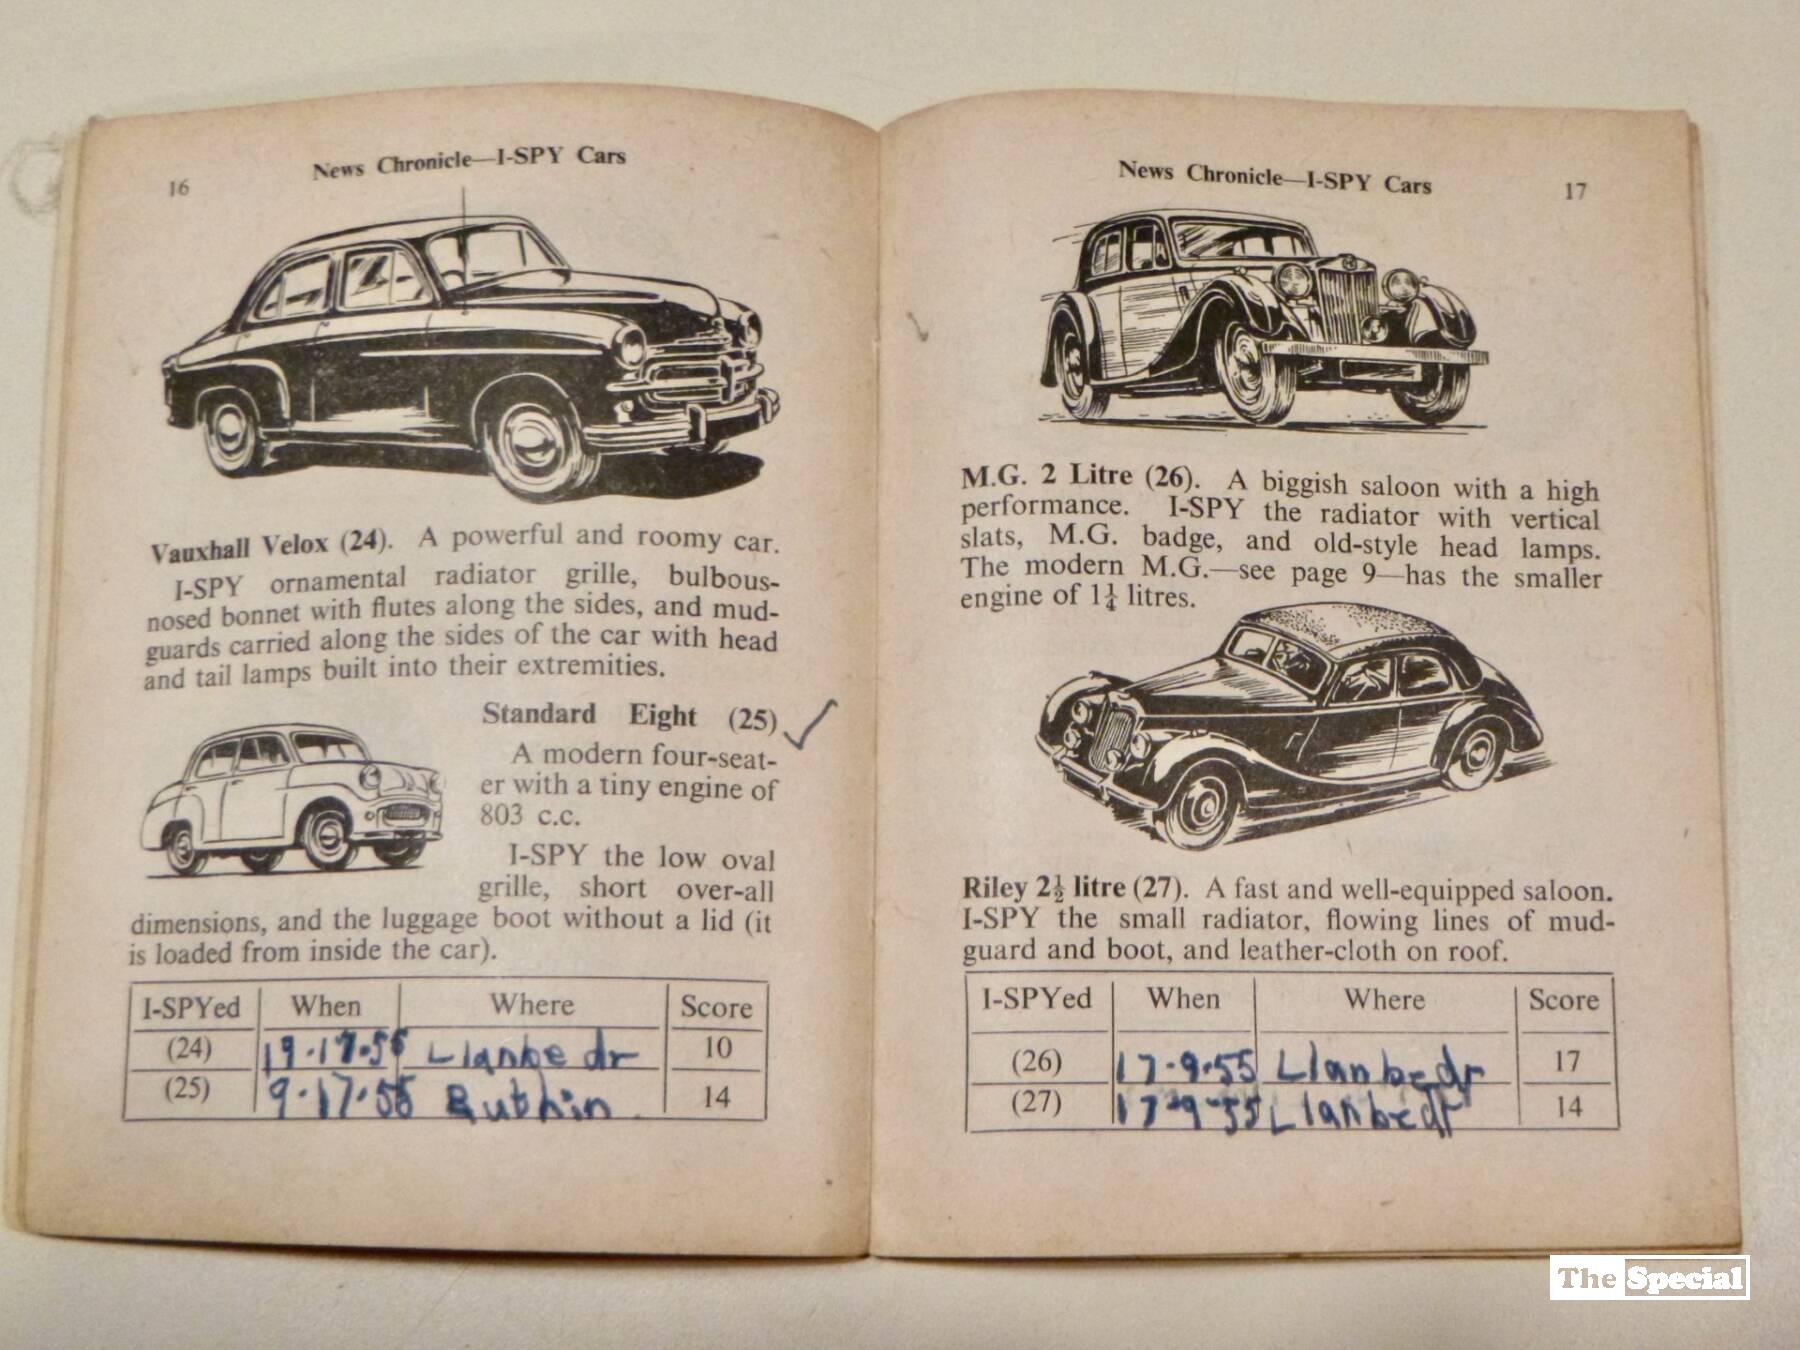 16
News Chronicle—I-SPY Cars
Vauxhall Velox (24). A powerful and roomy car.
I-SPY ornamental radiator grille, bulbous-
nosed bonnet with flutes along the sides, and mud-
guards carried along the sides of the car with head
and tail lamps built into their extremities.
Standard Eight (25)
A modern four-seat-
er with a tiny engine of
803 c.c.
I-SPY the low oval
grille, short over-all
dimensions, and the luggage boot without a lid (it
is loaded from inside the car).
I-SPYed When Where Score
(24) 19.17.55 Llanbedr 10
(25) 9.17.55 Ruthin 14
News Chronicle—I-SPY Cars
17
M.G. 2 Litre (26). A biggish saloon with a high
performance. I-SPY the radiator with vertical
slats, M.G. badge, and old-style head lamps.
The modern M.G.—see page 9—has the smaller
engine of 1¼ litres.
Riley 2½ litre (27). A fast and well-equipped saloon.
I-SPY the small radiator, flowing lines of mud-
guard and boot, and leather-cloth on roof.
I-SPYed When Where Score
(26) 17.9.55 Llanbedr 17
(27) 17-9-55 Llanbedr 14
The Special